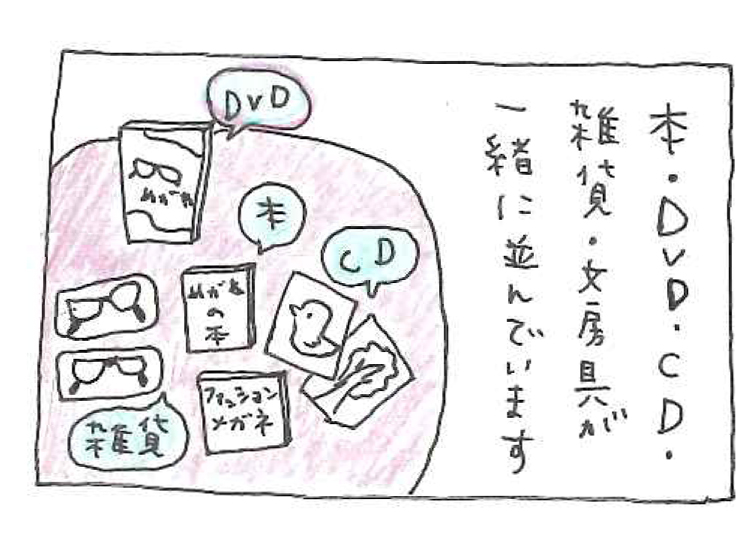 本・DVD・CD・
雑貨・文房具が
一緒に並んでいます
DVD
めがね
本
CD
めがね
の
本
ファッション
メガネ
雑貨